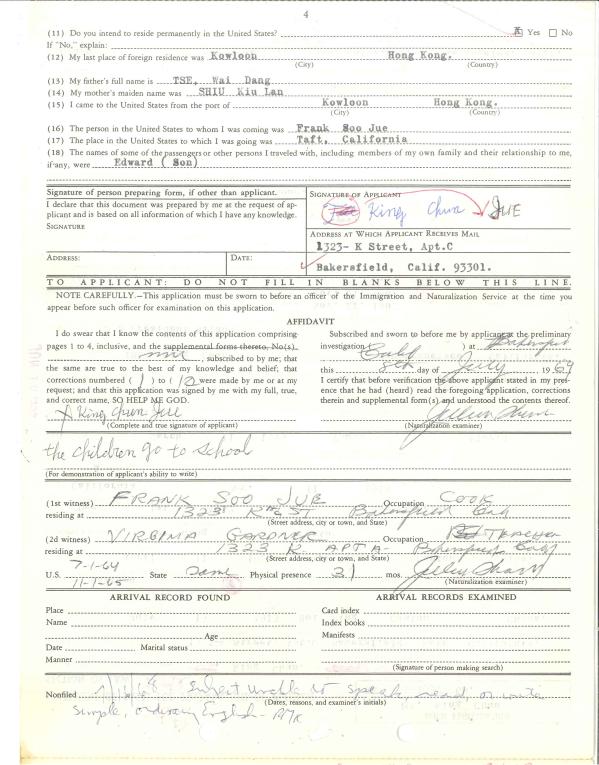 4
(11) Do you intend to reside permanently in the United States? X Yes No
If "No," explain:
(12) My last place of foreign residence was Kowloon Hong Kong.
(City) (Country)
(13) My father's full name is TSE, Wai Dang
(14) My mother's maiden name was SHIU Kiu Lan
(15) I came to the United States from the port of Kowloon Hong Kong.
(City) (Country)
(16) The person in the United States to whom I was coming was Frank Soo Jue
(17) The place in the United States to which I was going was Taft, California
(18) The names of some of the passengers or other persons I traveled with, including members of my own family and their relationship to me,
if any, were Edward ( Son)
Signature of person preparing form, if other than applicant.
I declare that this document was prepared by me at the request of ap-
plicant and is based on all information of which I have any knowledge.
SIGNATURE
SIGNATURE OF APPLICANT
King Chun JUE
ADDRESS AT WHICH APPLICANT RECEIVES MAIL
1323- K Street, Apt.C
ADDRESS: DATE:
Bakersfield, Calif. 93301.
TO APPLICANT: DO NOT FILL IN BLANKS BELOW THIS LINE.
NOTE CAREFULLY.—This application must be sworn to before an officer of the Immigration and Naturalization Service at the time you
appear before such officer for examination on this application.
AFFIDAVIT
I do swear that I know the contents of this application comprising
pages 1 to 4, inclusive, and the supplemental forms thereto, No(s).
, subscribed to by me; that
the same are true to the best of my knowledge and belief; that
corrections numbered ( 1 ) to ( 10 ) were made by me or at my
request; and that this application was signed by me with my full, true,
and correct name, SO HELP ME GOD.
X King Chun Jue
(Complete and true signature of applicant)
Subscribed and sworn to before me by applicant at the preliminary
investigation ( ) at Bakersfield
Calif
this 8th day of July, 1969
I certify that before verification the above applicant stated in my pres-
ence that he had (heard) read the foregoing application, corrections
therein and supplemental form(s) and understood the contents thereof.
(Naturalization examiner)
the children go to school
(For demonstration of applicant's ability to write)
(1st witness) FRANK SOO JUE Occupation COOK
residing at 1323 ST Bakersfield Calif
(Street address, city or town, and State)
(2d witness) VIRGINIA GARDNER Occupation TEACHER
residing at 1323 K APT A- Bakersfield Calif
(Street address, city or town, and State)
7-1-64
U.S. 11-1-65 State Same Physical presence 31 mos.
(Naturalization examiner)
ARRIVAL RECORD FOUND ARRIVAL RECORDS EXAMINED
Place Card index
Name Index books
Age Manifests
Date Marital status
Manner
(Signature of person making search)
Nonfiled Subject unable to speak, read, or write
(Dates, reasons, and examiner's initials)
simple, ordinary English -